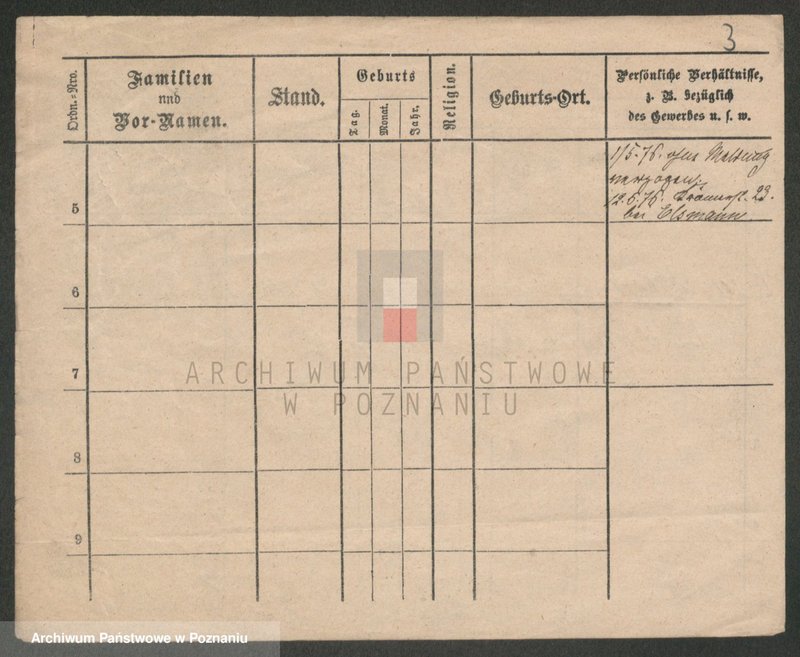 3
Ordn.=Nro.
Familien
und
Vor-Namen.
Stand.
Geburts
Tag.
Monat.
Jahr.
Religion.
Geburts-Ort.
Persönliche Verhältnisse,
z. B. bezüglich
des Gewerbes u. s. w.
1/5.76. ohne Meldung
verzogen;
12.5.76. 23.
bei Elsmann
5
6
7
8
9
ARCHIWUM PAŃSTWOWE
W POZNANIU
Archiwum Państwowe w Poznaniu